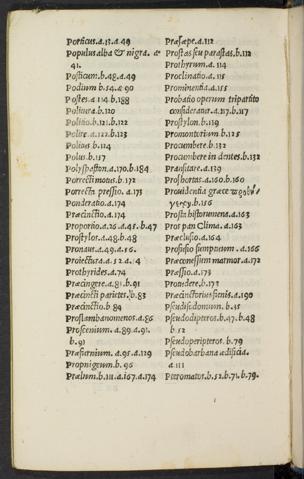 Porticus.a.13.a.49
Populus alba & nigra. a.
41.
Posticum.b.48.a.49
Podium b.54.a 90
Postes.a 114.b.188
Politura.b.120
Politio.b.121.b.122
Polire.a.122.b.123
Polius b.114
Polus b.157
Polyspaston.a.170.b.184
Porrecti motus.b.172
Porrecta pressio.a.173
Ponderatio a.174
Præcinctio.a.174
Proportio.a.26.a.45.b.47
Prostylos.a.48.b.48
Pronaus.a.49.a.86.
Proiectura.a.52.a.4
Prothyrides.a.74
Præcingere.a.81.b.91
Præcincti parietes.b.83
Præcinctio.b 89
Proslambanomenos.a.86
Proscenium.a.89.a.91.
b.91
Præfurnium.a.95.a.129
Propnigeum.b.96
Prælum.b.111.a.167.a.174
Præsæpe.a.112
Prostas seu parastas.b.112
Prothyrum.a.114
Proclinatio.a.115
Prominentia.a.155
Probatio operum tripartito
consideratur.a.117.b.117
Prostylon.b.119
Promontorium.b.125
Procumbere.b.132
Procumbere in dentes.b.132
Præusitare.a.139
Proshortas.a.160.b.160
Prouidentia græce
b.156
Prosta historumena.a.163
Pros pan Clima.a.163
Præclusio.a.164
Profusio sempuum.a.166
Præconessium marmor.a.172
Præssio.a.173
Prouidere.b.172
Præcinctorius fœnis.a.190
Pseudisodomum.b.35
Pseudodipteros.b.47.b.48
b.52
Pseudoperipteros.b.79
Pseudobarbana ædificia.
a.111
Pteromatos.b.52.b.71.b.79.